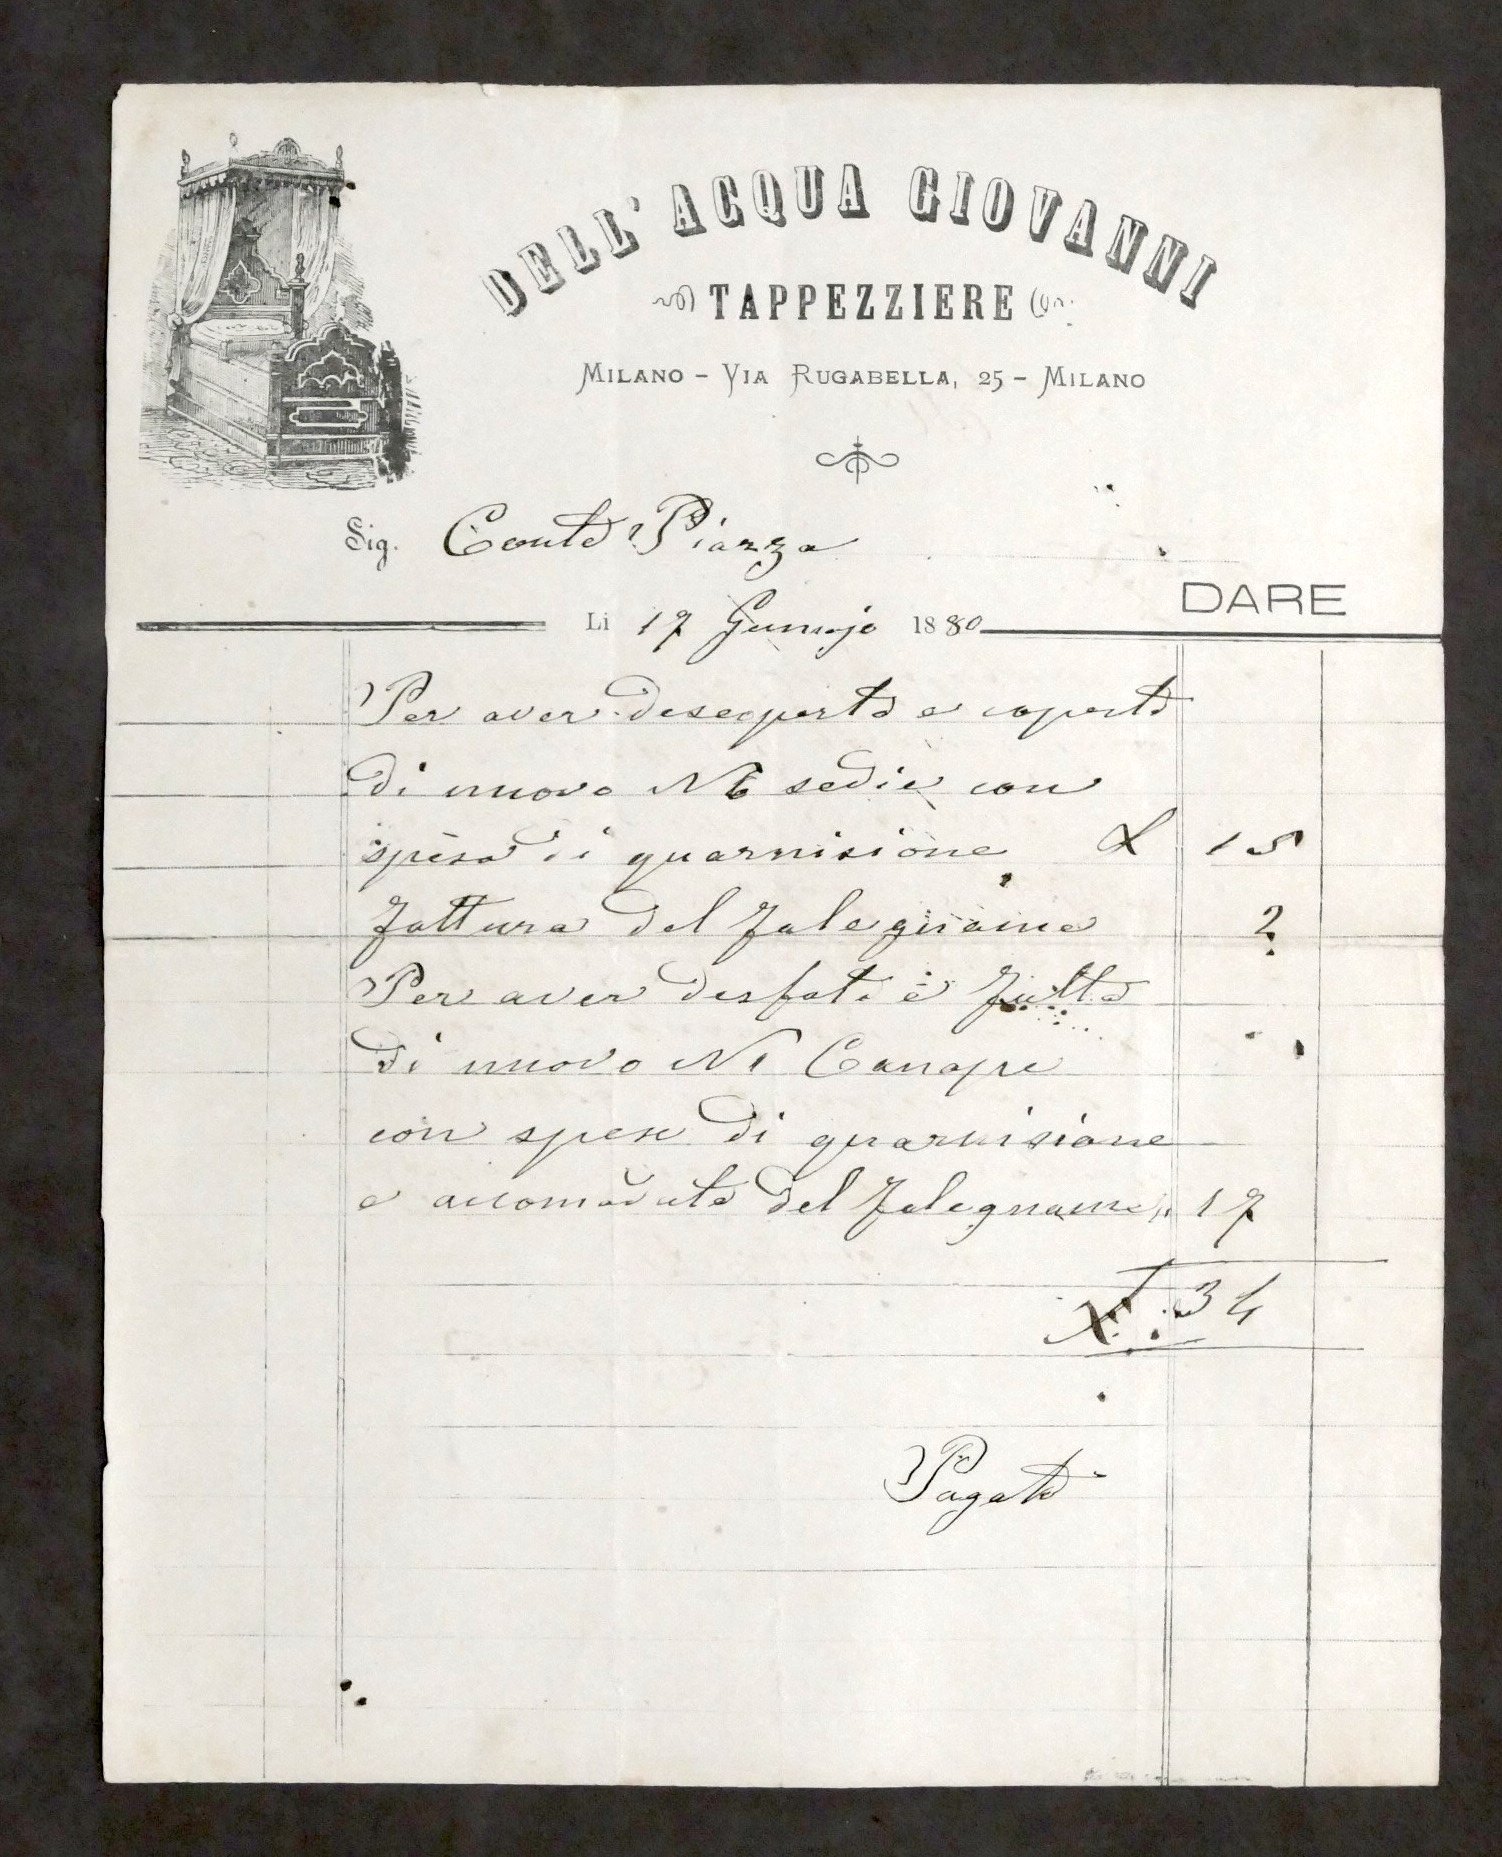 DELL'ACQUA GIOVANNI
TAPPEZZIERE
MILANO - VIA RUGABELLA, 25 - MILANO
Sig. Conte Piazza
DARE
Li 17 1880
Per aver descoperto e coperto
di nuovo N 6 sedie con
spesa di guarnisione £ 15
fattura del falegname 2
Per aver desfato e fatto
di nuovo N 1 Canape
con spese di guarnisione
e accomodato del falegname " 17
£ 34
Pagato